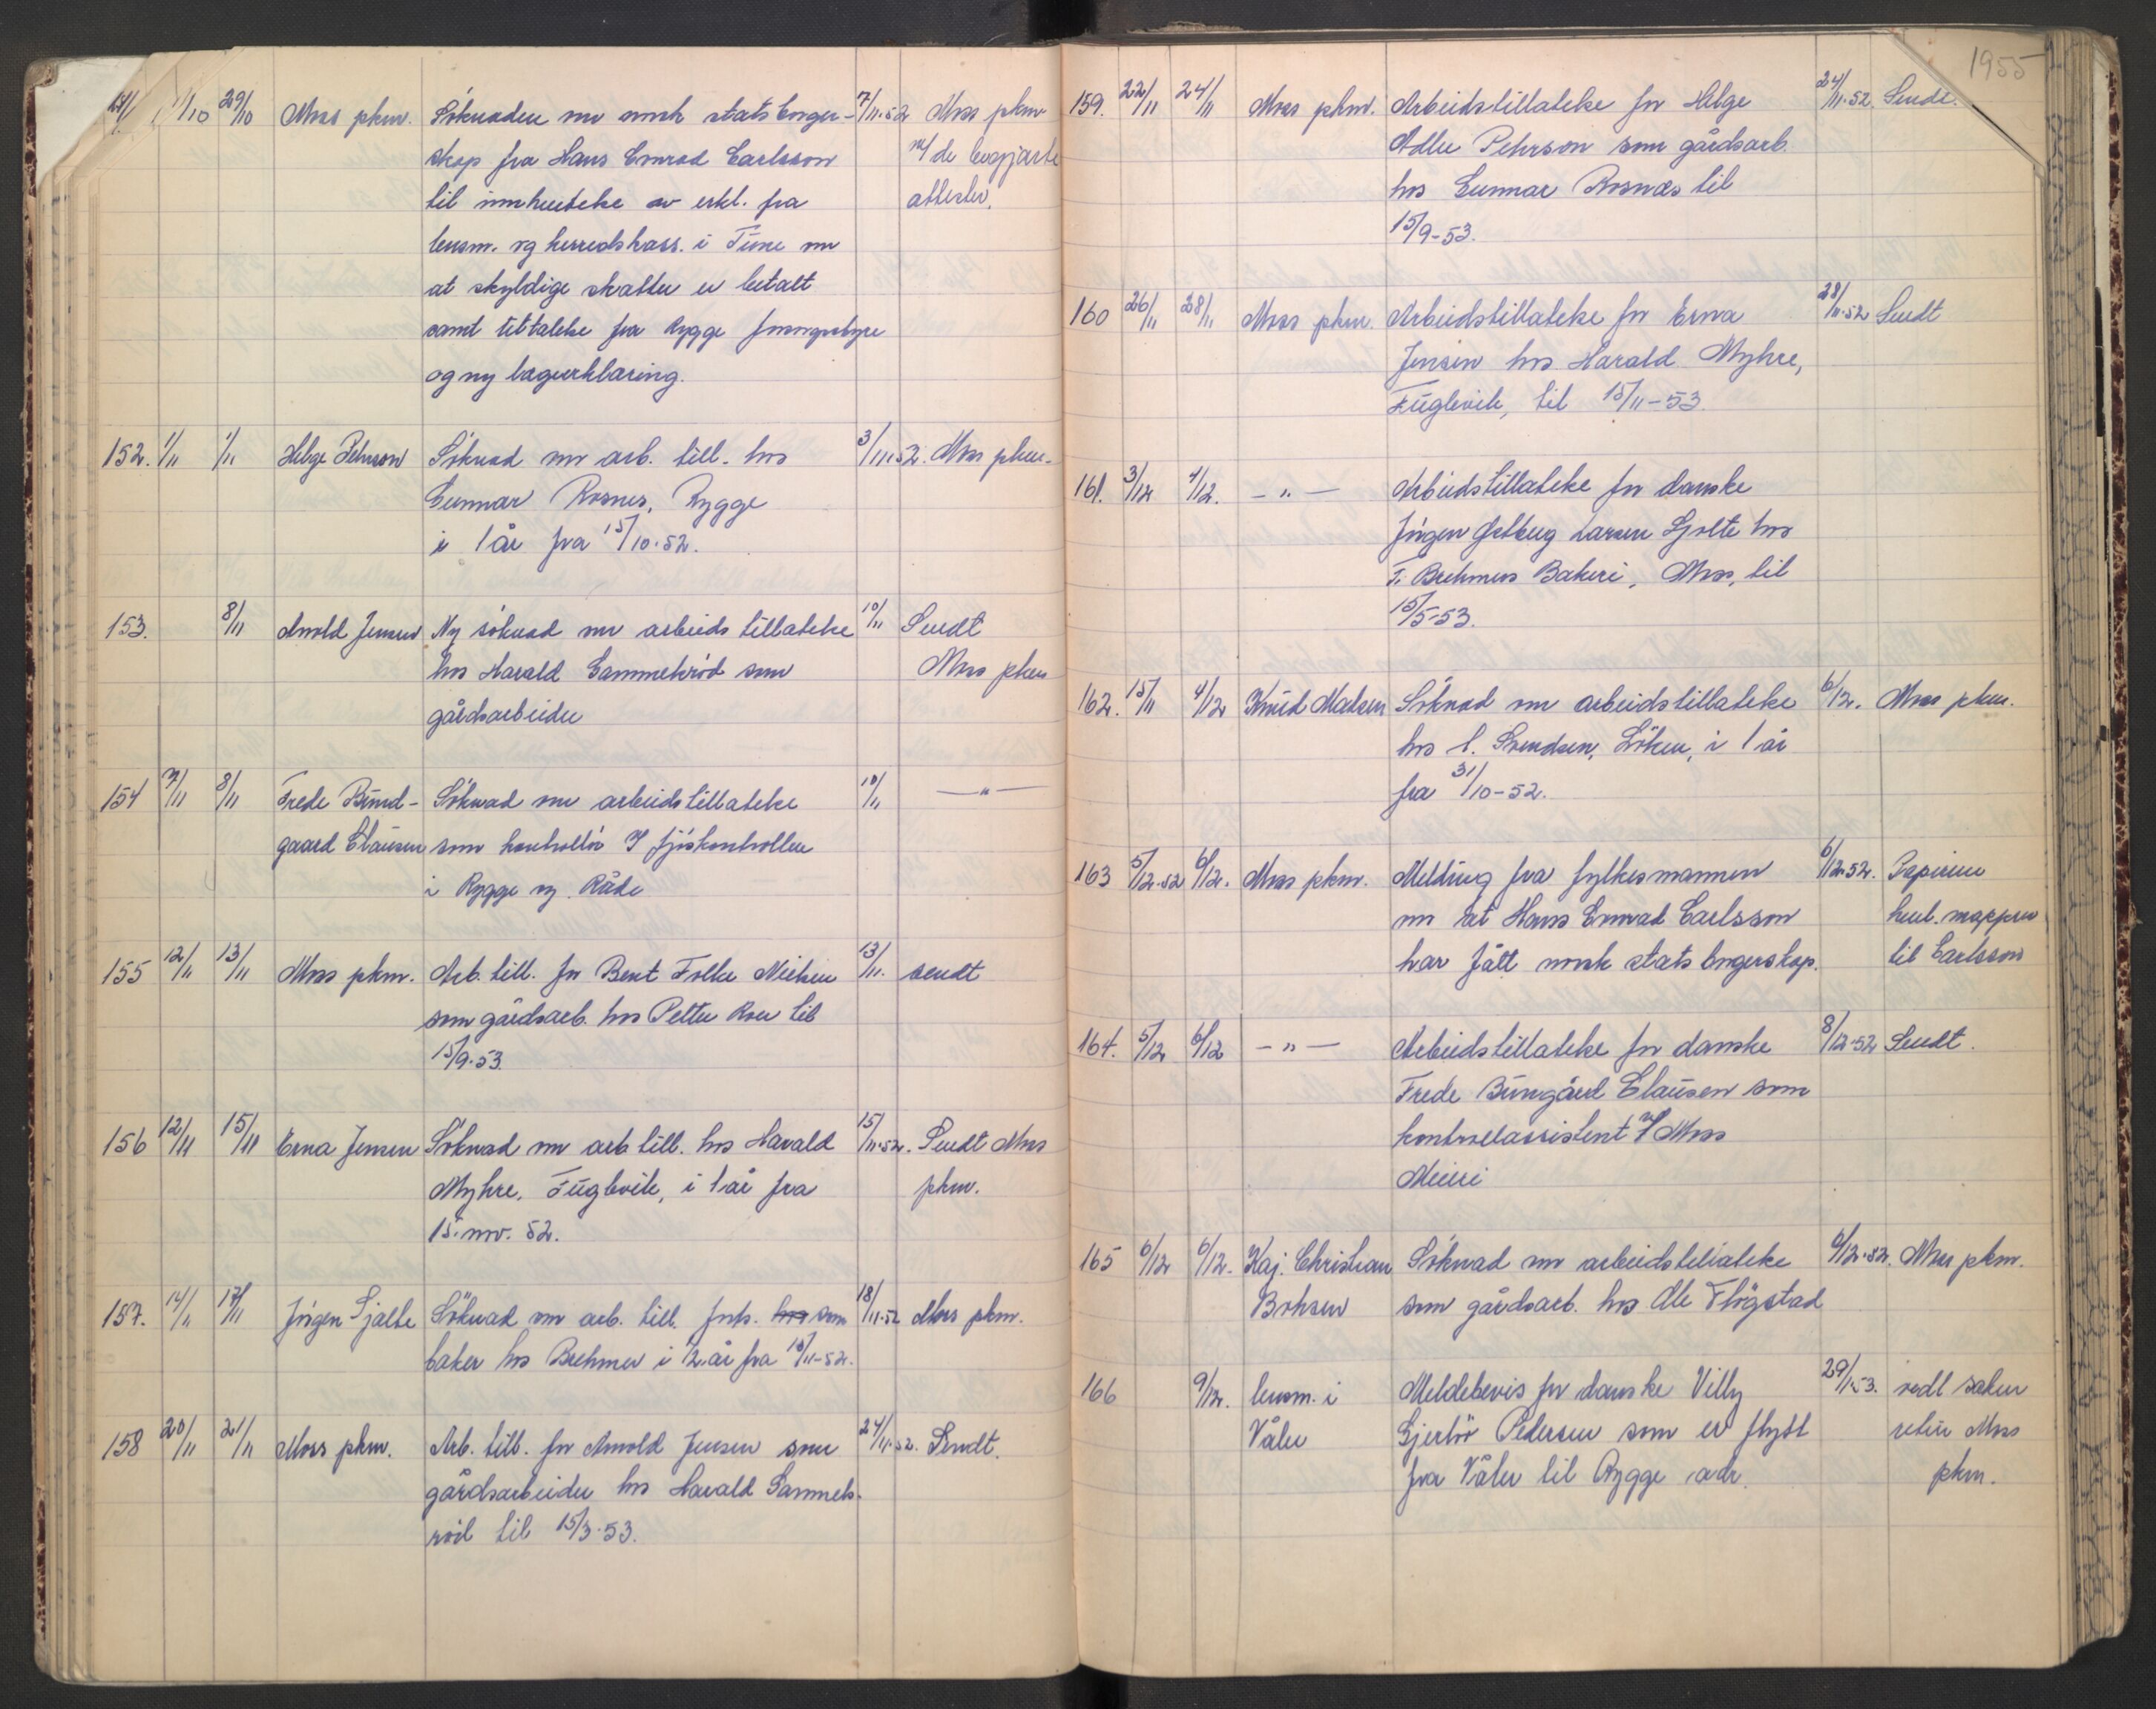 1955
29/10 Moss pkm. Söknaden om norsk statsborger- 7/11-52 Moss pkm
skap fra Hans Conrad Carlsson m/ de begjærte
til innhentelse av erkl. fra attester.
lensm. og herredskass. i Tune om
at skyldige skatter er betalt
samt uttalelse fra Rygge forsorgsstyre
og ny legeerklæring.
152. 1/11 1/11 Helge Pehrson Söknad om arb. till. hos 3/11-52. Moss pkm.
Gunnar Rosnes, Rygge
i 1 år fra 15/10-52.
153. 8/11 Arnold Jensen Ny söknad om arbeidstillatelse 10/11 Sendt
hos Harald Gammelsröd som Moss pkm
gårdsarbeider
154 7/11 8/11 Frede Bund- Söknad om arbeidstillatelse 10/11 —"—
gaard Clausen som kontrollör I fjöskontrollen
i Rygge og Råde
155 12/11 13/11 Moss pkm. Arb. till. for Bent Folke Nielsen 13/11. sendt
som gårdsarb. hos Petter Roer til
15/9-53.
156 12/11 15/11 Erna Jensen Söknad om arb till. hos Harald 15/11-52. Sendt Moss
Myhre, Fuglevik, i 1 år fra pkm.
15. nov. 52.
157. 14/11 17/11 Jörgen Sjalte Söknad om arb. till. forts. hos som 18/11-52 Moss pkm.
baker hos Brehmer i 1/2 år fra 15/11-52.
158 20/11 21/11 Moss pkm. Arb. till. for Arnold Jensen som 24/11-52. Sendt.
gårdsarbeider hos Harald Gammels-
röd til 15/3-53.
159. 22/11 24/11 Moss pkm. Arbeidstillatelse for Helge 24/11-52 Sendt.
Adler Pehrson som gårdsarb.
hos Gunnar Rosnæs til
15/9-53.
160 26/11 28/11 Moss pkm. Arbeidstillatelse for Erna 28/11-52 Sendt
Jensen hos Harald Myhre,
Fuglevik, til 15/11-53.
161. 3/12 4/12. —"— Arbeidstillatelse for danske
Jörgen Larsen Sjolte hos
F. Brehmers Bakeri, Moss, til
15/5-53.
162. 15/11 4/12 Knud Madsen Söknad om arbeidstillatelse 6/12. Moss pkm.
hos l. Svendsen, Löken, i 1 år
fra 31/10-52.
163 5/12-52 6/12. Moss pkm. Melding fra fylkesmannen 6/12-52. Papirene
om at Hans Conrad Carlsson henl. mappen
har fått norsk statsborgerskap. til Carlsson
164. 5/12 6/12 —"— Arbeidstillatelse for danske 8/12-52 Sendt.
Frede Bungård Clausen som
kontrollassistent v/ Moss
Meieri
165 6/12 6/12. Kaj. Christian Söknad om arbeidstillatelse 6/12-52. Moss pkm.
Bohsen som gårdsarb. hos Ole Flögstad
166 9/12. lensm. i Meldebevis for danske Villy 29/1-53. vedl saken
Våler Gjertör Pedersen som er flytt retur Moss
fra Våler til Rygge adr. pkm.